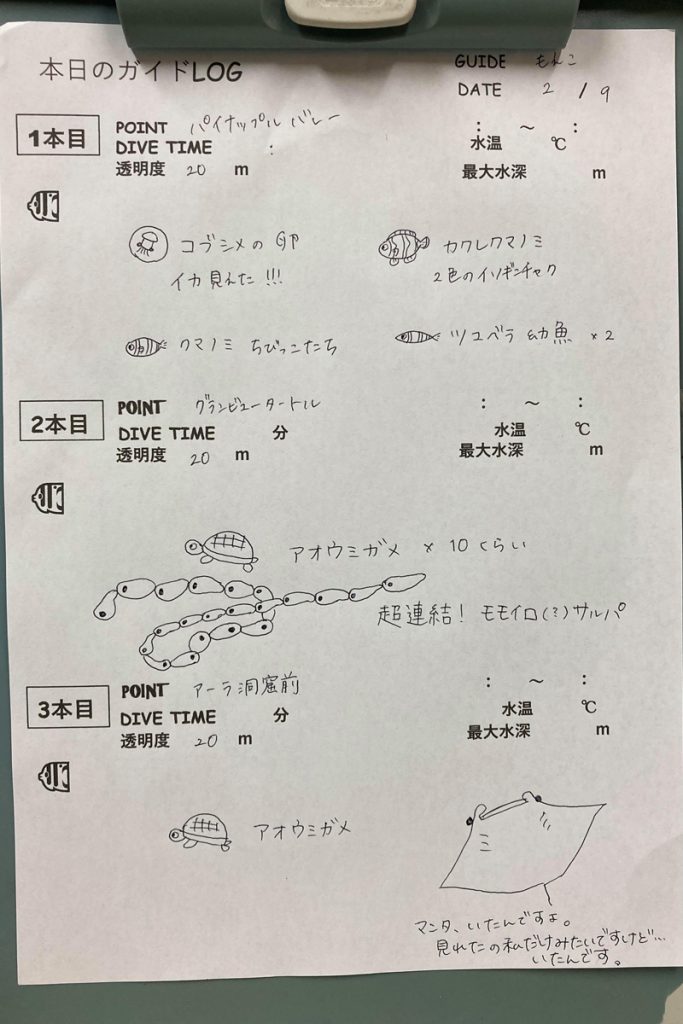 本日のガイドLOG
GUIDE もんこ
DATE 2 / 9
1本目
POINT パイナップル バレー
: ~ :
DIVE TIME :
水温 ℃
透明度 20 m
最大水深 m
コブシメの卵
イカ見えた!!!
カクレクマノミ
2色のイソギンチャク
クマノミ ちびっこたち
ツユベラ 幼魚 ×2
2本目
POINT グランビュータートル
: ~ :
DIVE TIME 分
水温 ℃
透明度 20 m
最大水深 m
アオウミガメ × 10 くらい
超連結! モモイロ(?)サルパ
3本目
POINT アーラ洞窟前
: ~ :
DIVE TIME 分
水温 ℃
透明度 20 m
最大水深 m
アオウミガメ
マンタ、いたんですよ。
見れたの私だけみたいですけど…
いたんです。